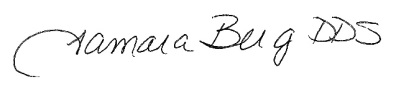 Tamara Berg DDS